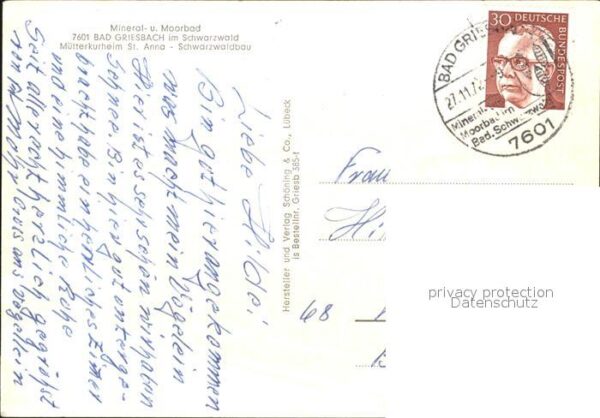 Mineral- u. Moorbad
7601 BAD GRIESBACH im Schwarzwald
Mütterkurheim St. Anna - Schwarzwaldbau
Liebe Hilde!
Bin gut hier angekommen
was macht mein Vögelein
Hier ist es sehr schön wir haben
Schnee. Bin hier gut unterge-
bracht habe ein herrliches Zimmer
und eine himmlische Ruhe.
Seit alle recht herzlich gegrüßt
von
Hersteller und Verlag Schöning & Co., Lübeck
is Bestellnr. Griesb 585-1
30 DEUTSCHE
BUNDESPOST
BAD GRIES
27.11.72
Mineral-
Moorbad im
Bad. Schwarzwa
7601
Frau
Hi
68
privacy protection
Datenschutz